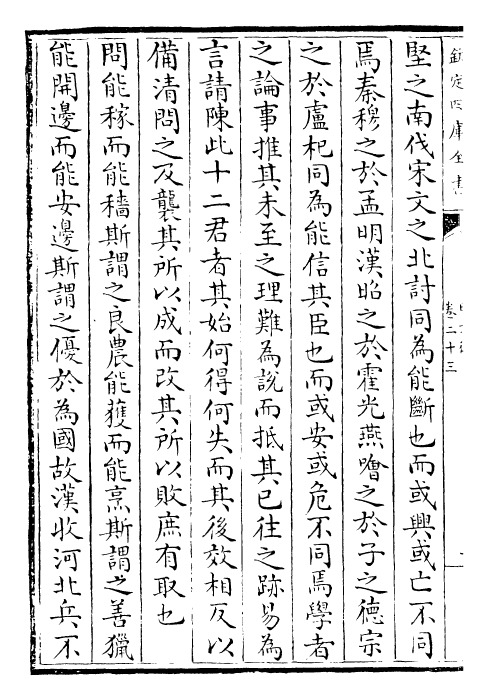 欽定四庫全書
卷二十三
堅之南伐宋文之北討同為能斷也而或興或亡不同
焉秦穆之於孟明漢昭之於霍光燕噲之於子之德宗
之於盧杞同為能信其臣也而或安或危不同焉學者
之論事推其未至之理難為說而抵其已往之跡易為
言請陳此十二君者其始何得何失而其後效相反以
備清問之及襲其所以成而改其所以敗庶有取也
問能稼而能穡斯謂之良農能獲而能烹斯謂之善獵
能開邊而能安邊斯謂之優於為國故漢收河北兵不